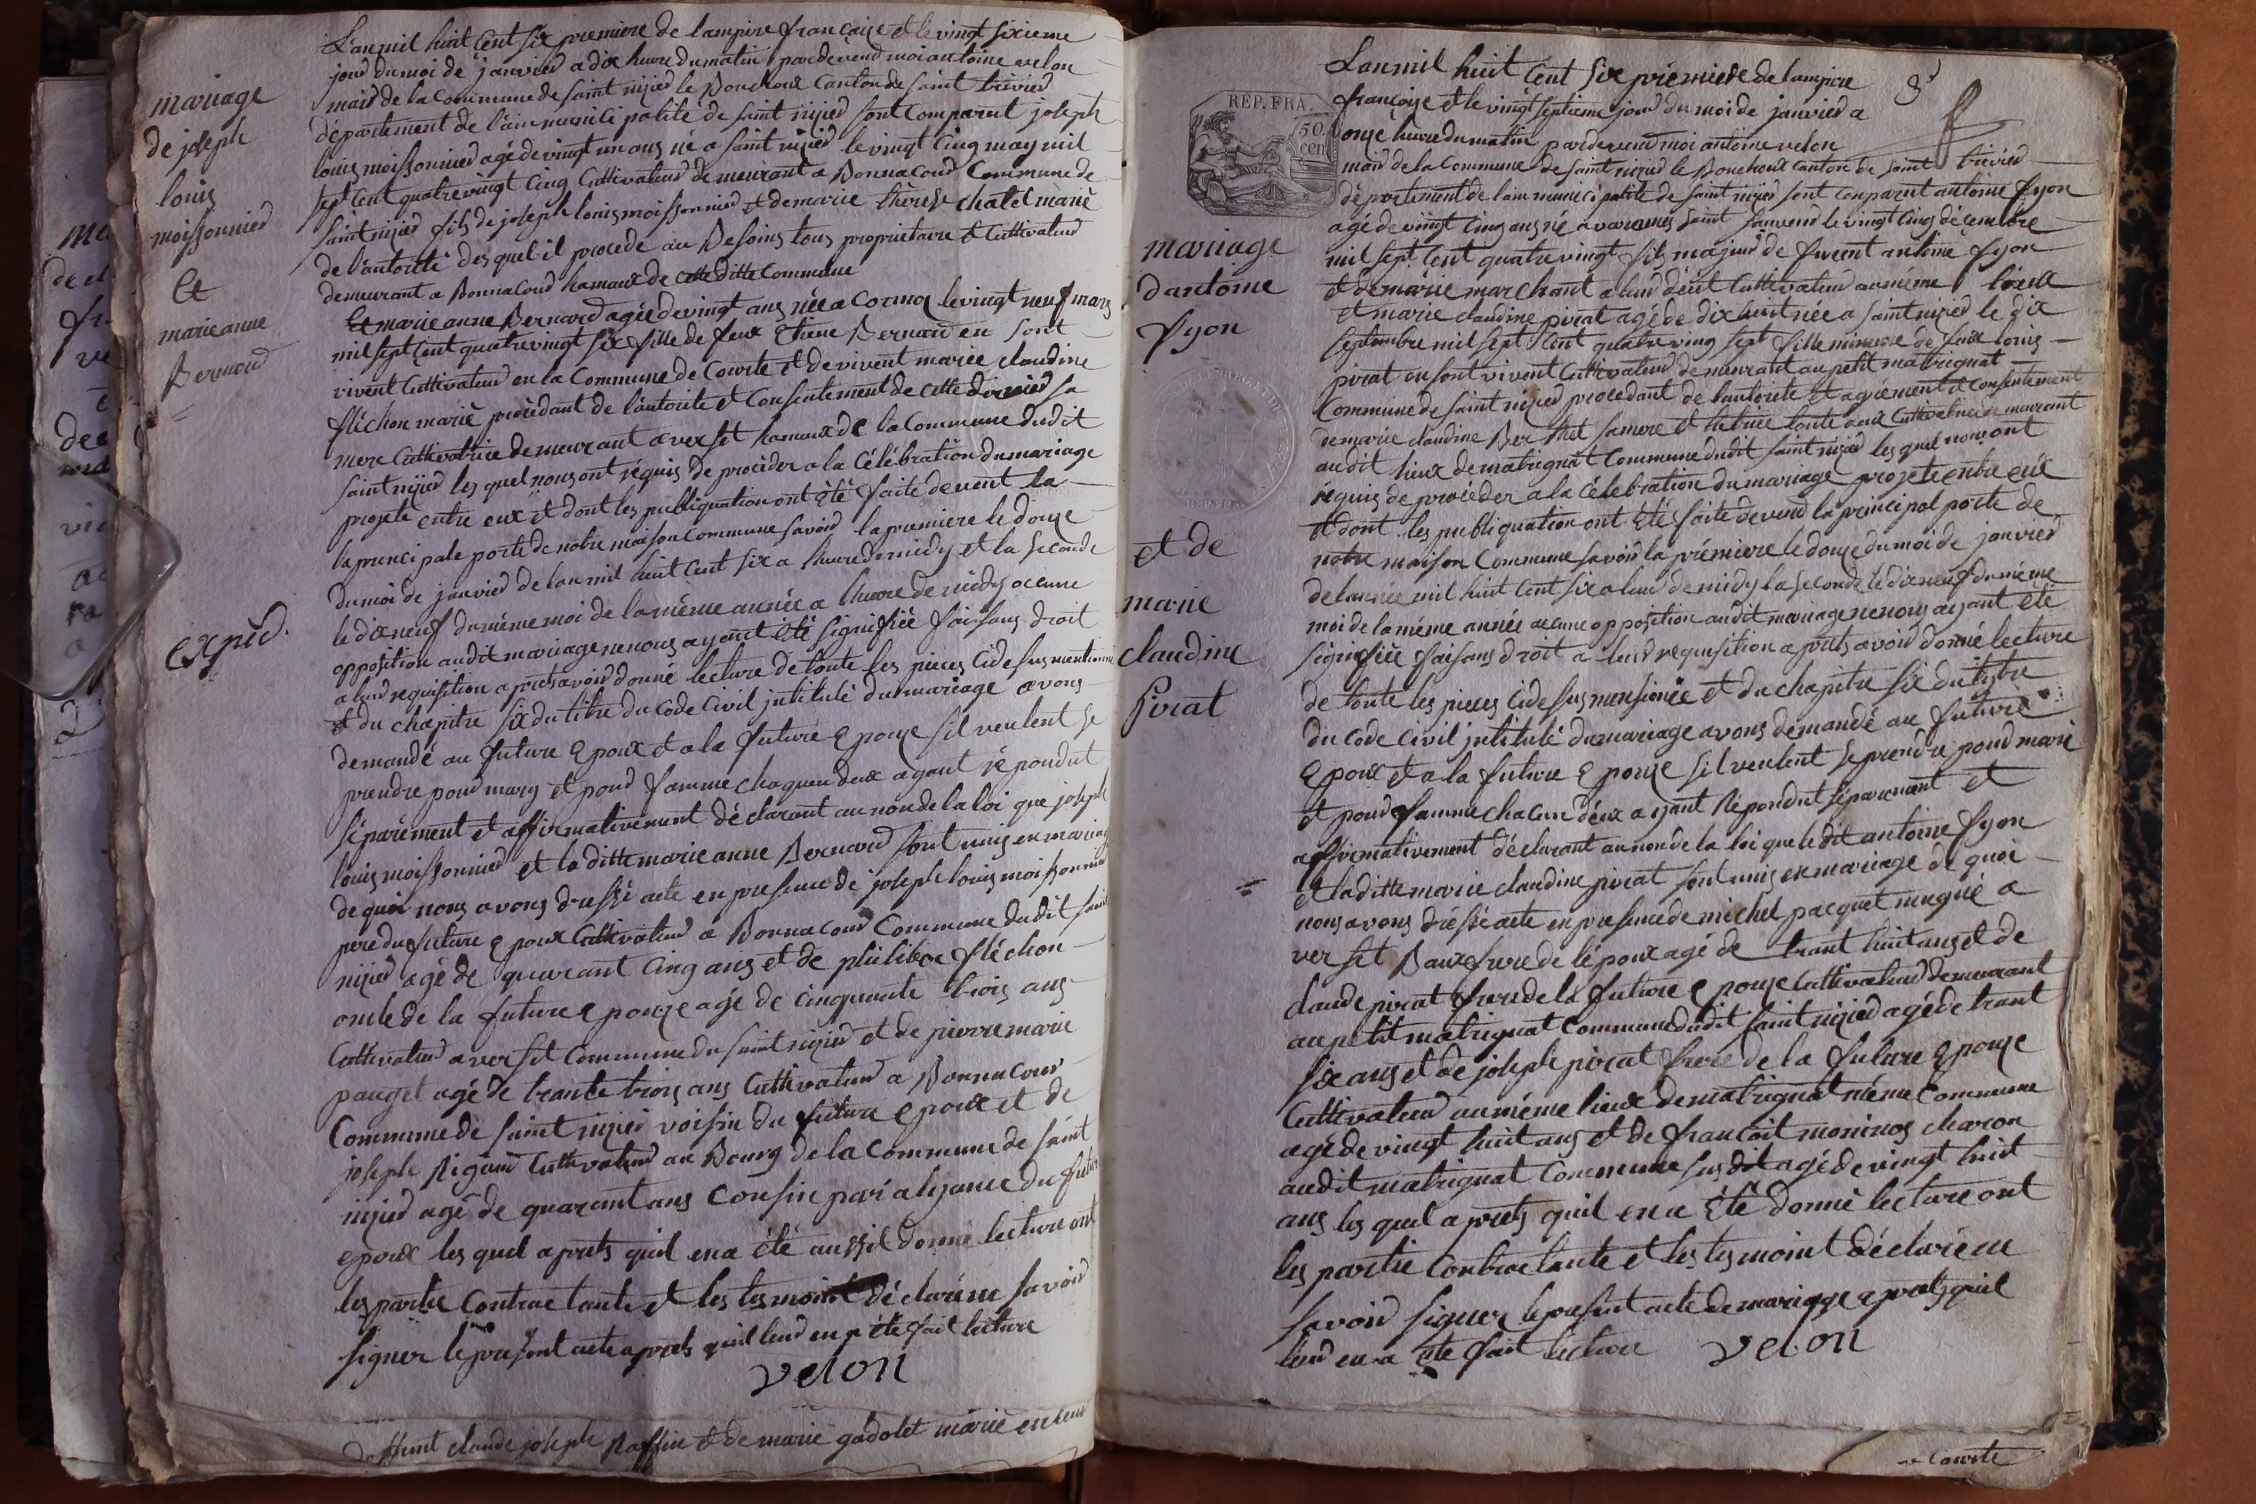 mariage
de joseph
louis
moissonnier
Et
marie anne
Bernard
expéd.
L'an mil huit Cent six premiere de lampire françaize et le vingt sixieme
jour du moi de janvier a dix heure du matin pardevend moi antoine velon
maire de la Commune de saint nizier le Bouchoux Canton de saint trivier
département de l'ain municipalité de saint nizier sont Comparut joseph
louis moissonnier agé de vingt un ans né a saint nizier le vingt Cinq may mil
sept Cent quatre vingt Cinq Cultivateur demeurant a Bonnacour Commune de
saint nizier fils de joseph louis moissonnier et de marie thèreze chatel marié
de l'autorité des quel il procede au Besoins tous proprietaire et Cultivateur
demeurant a Bonnacour hamaux de cette ditte Commune
Et marie anne Bernard agée de vingt ans née a Cormoz le vingt neuf mars
mil sept Cent quatre vingt six fille de feux Etiene Bernard en sont
vivent Cultivateur en la Commune de Courte et de vivent mariee claudine
fléchon marié procédant de l'autorite et Consentement de cette dernier sa
mere Cultivatrice demeurant a verset hamaux de la Commune dudit
saint nizier les quel nous ont réquis de procéder a la Célébration du mariage
projete entre eux et dont les publiquation ont été faite devent la
la principale porte de notre maison Commune savoir la premiere le douze
du moi de janvier de l'an mil huit Cent six a l'heure de midy et la seconde
le dix neuf du même moi de la même année a l'heure de midy aucune
opposition audit mariage ne nous ayant été signifiée faisans droit
a leur requisition aprets avoir donné lecture de toute les pieces Cidesus mentionne
et du chapitre six du titre du Code Civil jntitulé du mariage avons
demandé au future Epoux et a la future Epouze sil veulent se
prendre pour mary et pour famme chaquen deux ayant répondut
séparément et affirmativement déclarant au non de la loi que joseph
louis moissonnier et la ditte marie anne Bernard sont unis en mariage
de quoi nous avons dressé acte en presence de joseph louis moissonnier
pere du future Epoux Cultivateur a Bonnacour Commune dudit saint
nizier agé de quarant Cinq ans et de philiber fléchon
oncle de la future Epouze agé de Cinquante trois ans
Cultivateur a verset Commune du saint nizier et de pierre marie
pauget agé de trante trois ans Cultivateur a Bonnacour
Commune de saint nizier voisin du future Epoux et de
joseph Rigaud Cultivateur au Bourg de la Commune de saint
nizier agé de quarant ans Cousin par alyance du futur
epoux les quel aprets quil en a été aussit donné lecture ont
les partie Contractante et les tesmoint déclaré ne savoir
signer le present acte aprets quil leur en a été fait lecture
velon
deffunt claude joseph Raffin et de marie gadolet marié en leur
3
REP. FRA.
50 cen
mariage
dantoine
fyon
et de
marie
claudine
Pirat
L'an mil huit Cent six prémiere de lampire
françaize et le vingt septieme jour du moi de janvier a
onze heure du matin pardevend moi antoine velon
maire de la Commune de saint nizier le Bouchoux Canton de saint trivier
département de l'ain municipalité de saint nizier sont Comparut antoine fyon
agé de vingt Cinq ans né a varennes saint sauveur le vingt Cinq décembre
mil sept Cent quatre vingt fils majeur de fuent antoine fyon
et de marie marchant a leur déut Cultivateur au même lieux
et marie claudine pirat agé de dix huit née a saint nizier le dix
septembre mil sept Cent quatre ving sept fille mineure de feux louis
pirat en sont vivent Cultivateur demeurant au petit matrignat
Commune de saint nizier procedant de l'autorite et agrément et Consentement
de marie claudine Berthet sa mere et tutrice toute deux Cultivatrice demeurant
audit lieux de matrignat Commune dudit saint nizier les quel nous ont
réquis de procéder a la Célébration du mariage projete entre eux
et dont les publiquation ont été faite devend la principal porte de
notre maison Commune savoir la prémiere le douze du moi de janvier
de l'année mil huit Cent six a leur de midy la seconde le dix neuf du même
moi de la même année aucune opposition audit mariage ne nous ayant été
signifiée faisans droit a leur requisition aprets avoir donné lecture
de toute les pieces Cidesus mensionée et du chapitre six du tytre
du Code Civil jntitulé du mariage avons demandé au future
Epoux et a la future Epouze sil veulent se prendre pour marié
et pour famme chacun déux ayant Répondut séparémant et
affirmativement déclarant au non de la loi que ledit antoine fyon
et la ditte marie claudine pirat sont unis en mariage de quoi
nous avons dréssé acte en presence de michel pacquet a
verset Baux frere de lépoux agé de trant huit ans et de
claude pirat frere de la future Epouze Cultivateur demeurant
au petit matrignat Commune dudit saint nizier agé de trant
six ans et de joseph pirat frere de la future Epouze
Cultivateur au même lieux de matrignat même Commune
agé de vingt huit ans et de françoit moninos charon
audit matrignat Commune susdit agé de vingt huit
ans les quel aprets quil en a été donné lecture ont
les partie Contractante et les tesmoint déclaré ne
savoir signer le present acte de mariage aprets quil
leur en a été fait lecture velon
Courte